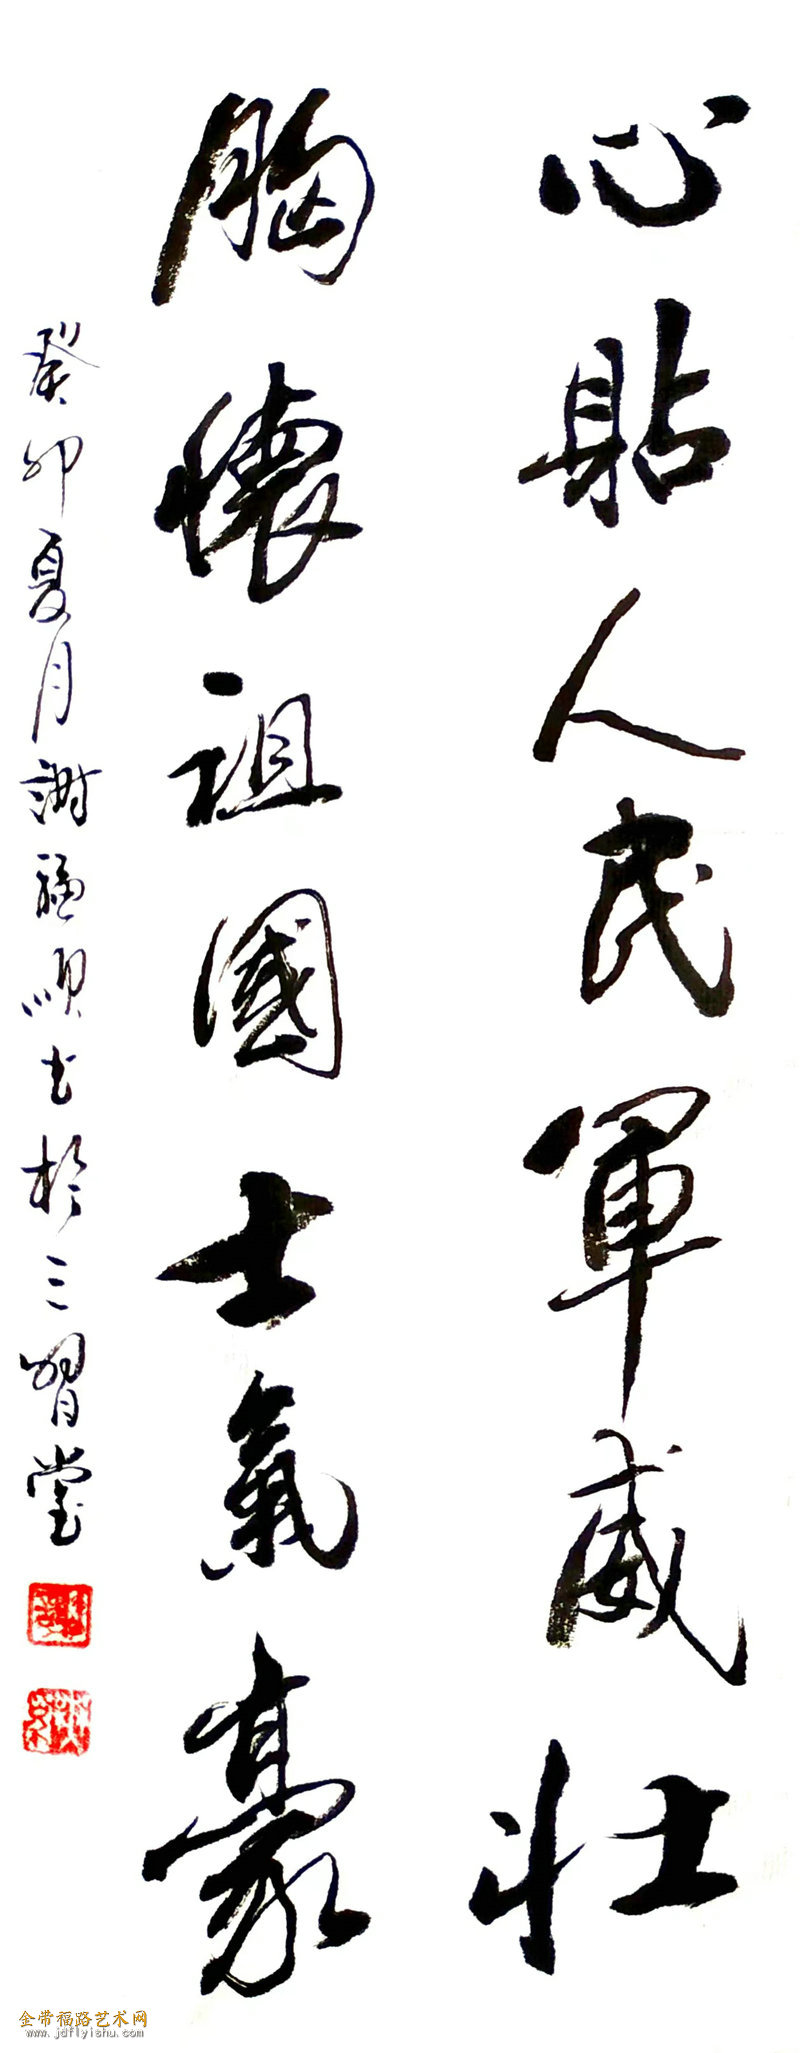 心貼人民軍威壯
胸懷祖國士氣豪
癸卯夏月謝福順书於三習堂
金带福路艺术网
www.jdflyishu.com